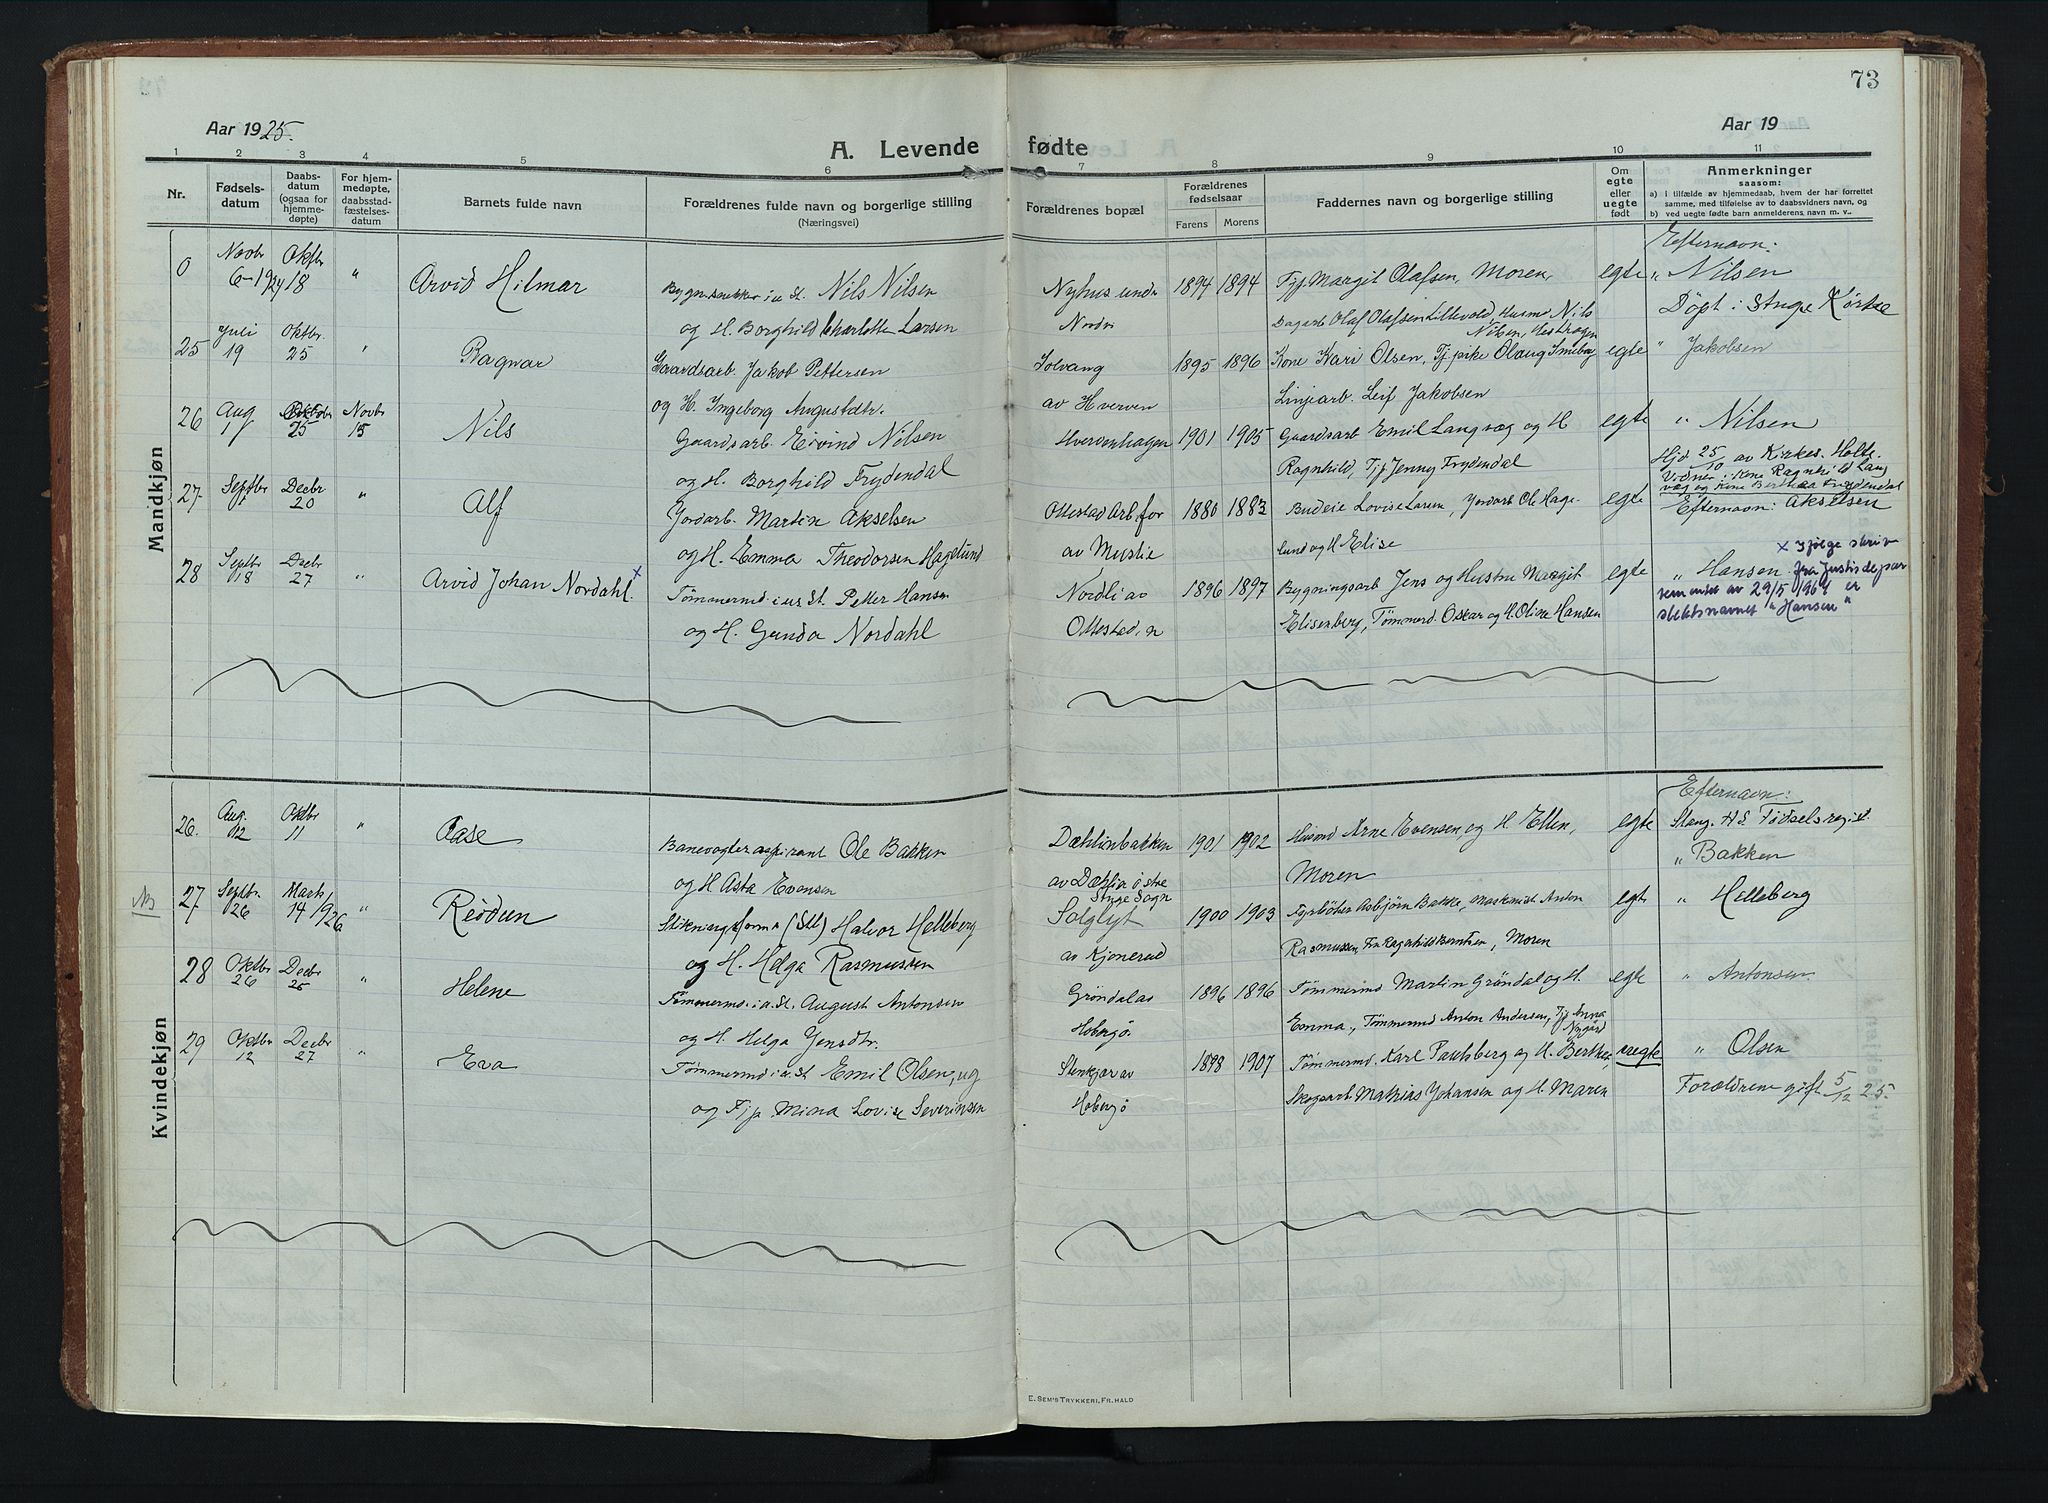 73
Aar 1925.
A. Levende fødte
Aar 19
1 2 3 4 5 6 7 8 9 10 11
Nr.
Fødsels-
datum
Daabs-
datum
(ogsaa for
hjemme-
døpte)
For hjem-
medøpte,
daabsstad-
fæstelses-
datum
Barnets fulde navn
Forældrenes fulde navn og borgerlige stilling
(Næringsvei)
Forældrenes bopæl
Forældrenes
fødselsaar
Farens Morens
Faddernes navn og borgerlige stilling
Om
egte
eller
uegte
født
Anmerkninger
saasom:
a) i tilfælde av hjemmedaab, hvem der har forrettet
samme, med tilføielse av to daabsvidners navn, og
b) ved uegte fødte barn anmelderens navn m. v..
Mandkjøn
Efternavn:
0 Novbr 6-1924 Oktbr 18 " Arvid Hilmar
Nils Nilsen
og H. Borghild Charlotte Larsen
Nyhus unde
Nordre
1894 1894
Tjp. Margit Olafsen, Moren,
Dagarb Olaf Olafsen Lillevold, Husm Nils
Nilsen, Hestragen
egte " Nilsen
Døpt i Stange Kirke
25 Juli 19 Oktbr. 25 " Ragnar
Gaardsarb. Jakob Pettersen
og H. Ingeborg Augustdtr.
Solvang
av Hverven
1895 1896
Kone Kari Olsen, Tj pike Olaug Smeborg
Linjearb. Leif Jakobsen
egte " Jakobsen
26 Aug 1 Oktobr 25 Novbr 15 Nils
Gaardsarb. Eivind Nilsen
og H. Borghild Frydendal
Hvervenhagen
1901 1905
Gaardsarb Emil Langvæg og H
Ragnhild, Tjp Jenny Frydendal
egte " Nilsen
Hjd 25/10 av Kirkes. Holte.
Vidner: Kone Ragnhild Lang
væg og Kone Berthea Frydendal
27. Septbr 1 Decbr 20 " Alf
Jordarb. Martin Akselsen
og H. Emma Theodorsen Hagelund
Ottestad Arb for
av Mustie
1880 1883
Budeie Lovise Larsen, Jordarb Ole Hage-
lund og H Elise
egte Efternavn: Akselsen
28 Septbr 18 Decbr 27 " Arvid Johan Nordahl. x
Tømmermd. i u St. Petter Hansen
og H. Gunda Nordahl
Nordli av
Ottestad n
1896 1897
Bygningsarb Jens og Hustru Margit
Elisenberg, Tømmerd. Oskar og H. Oline Hansen
egte " Hansen
x Ifølge skriv
fra Justisdepar
tementet av 29/5 1964 er
slektsnavnet "Hansen"
Kvindekjøn
Efternavn:
26. Aug. 12 Oktbr 11 " Aase
Banevogteraspirant Ole Bakken
og H Asta Evensen
Dæhlinbakken
av Dæhlin østre
Stange Sogn
1901 1902
Husmd Arne Evensen, og H. Ellen,
Moren
egte Stang. H.S. Fødselsregist.
" Bakken
NB 27 Septbr. 26 Mars 14 1926 " Reidun
Stikningsforma (Stb) Halvor Helleberg
og H. Helga Rasmussen
Solglyt
av Kjonerud
1900 1903
Fyrbøter Asbjørn Bakke, Maskinist Anton
Rasmussen, Fr Ragnhild Berntsen, Moren
egt " Helleberg
28 Oktbr 26 Decbr 25 " Helene
Tømmermd. i u. St. August Antonsen
og H. Helga Jensdtr.
Grøndal av
Hobergø.
1896 1896
Tømmermd Martin Grøndal og H.
Emma, Tømmermd Anton Andersen, Tjp Anna
Nygård
egte " Antonsen
29 Oktbr 12 Decbr 27 " Eva
Tømmermd i u. St Emil Olsen, ug
og Tjp Mina Lovise Severinsen
Stenkjær av
Hobergø
1898 1907
Tømmermd. Karl Paulsberg og H. Berthe,
Skogsarb Mathias Johansen og H Maren
uegte " Olsen
Forældrene gift 5/12 25.
E. SEM'S TRYKKERI, FR. HALD